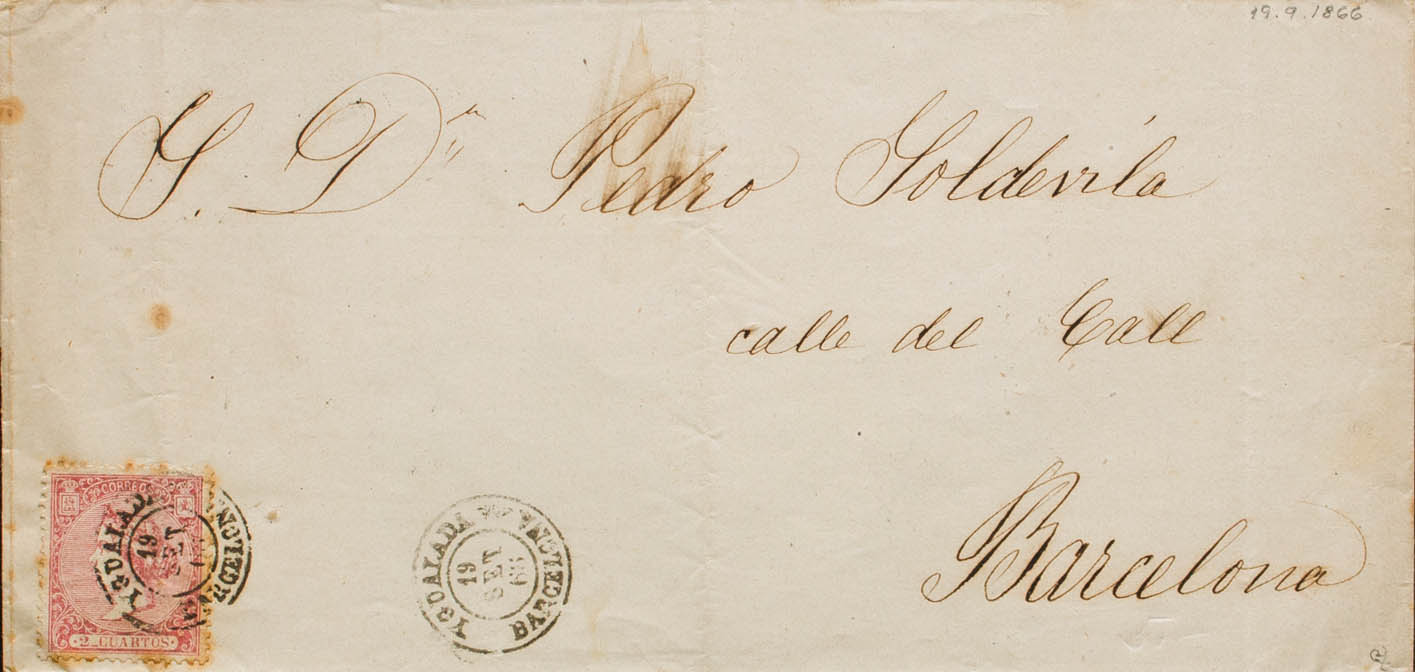 19.9.1866
S. Dn Pedro Soldevila
calle del Call
Barcelona
CORREOS
2 CUARTOS
YGUALADA
19
SET
BARCELONA
YGUALADA
19
SET
66
BARCELONA